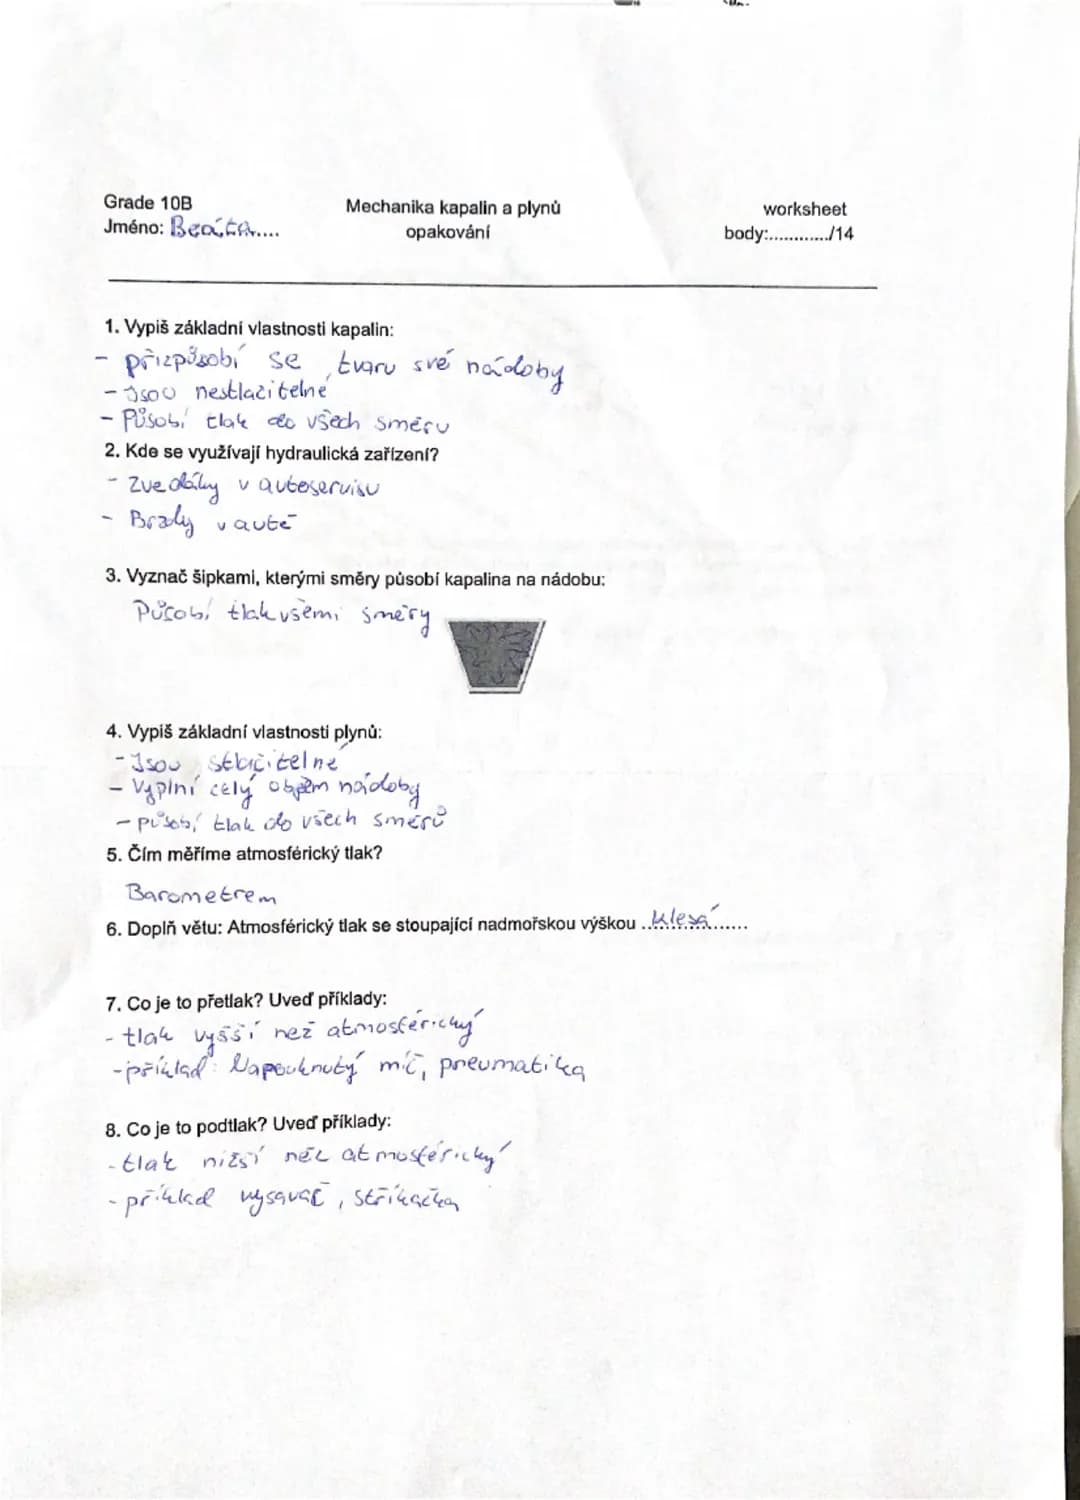 Grade 10B
Mechanika kapalin a plynů
worksheet
Jméno: Beáta....
opakování
body:............/14
1. Vypiš základní vlastnosti kapalin:
- přizpůsobí se tvaru své nádoby
- Jsou nestlačitelné
- Působí tlak do všech směru
2. Kde se využívají hydraulická zařízení?
- Zvedáky v autoservisu
- Brzdy v autě
3. Vyznač šipkami, kterými směry působí kapalina na nádobu:
Působí tlak všemi směry
4. Vypiš základní vlastnosti plynů:
- Jsou stlačitelné
- Vyplní celý objem nádoby
- působí tlak do všech směrů
5. Čím měříme atmosférický tlak?
Barometrem
6. Doplň větu: Atmosférický tlak se stoupající nadmořskou výškou ..klesá......
7. Co je to přetlak? Uveď příklady:
- tlak vyšší než atmosférický
- příklad: Napouknutý míč, pneumatika
8. Co je to podtlak? Uveď příklady:
- tlak nižší než atmosférický
- příklad vysavač, stříkačka